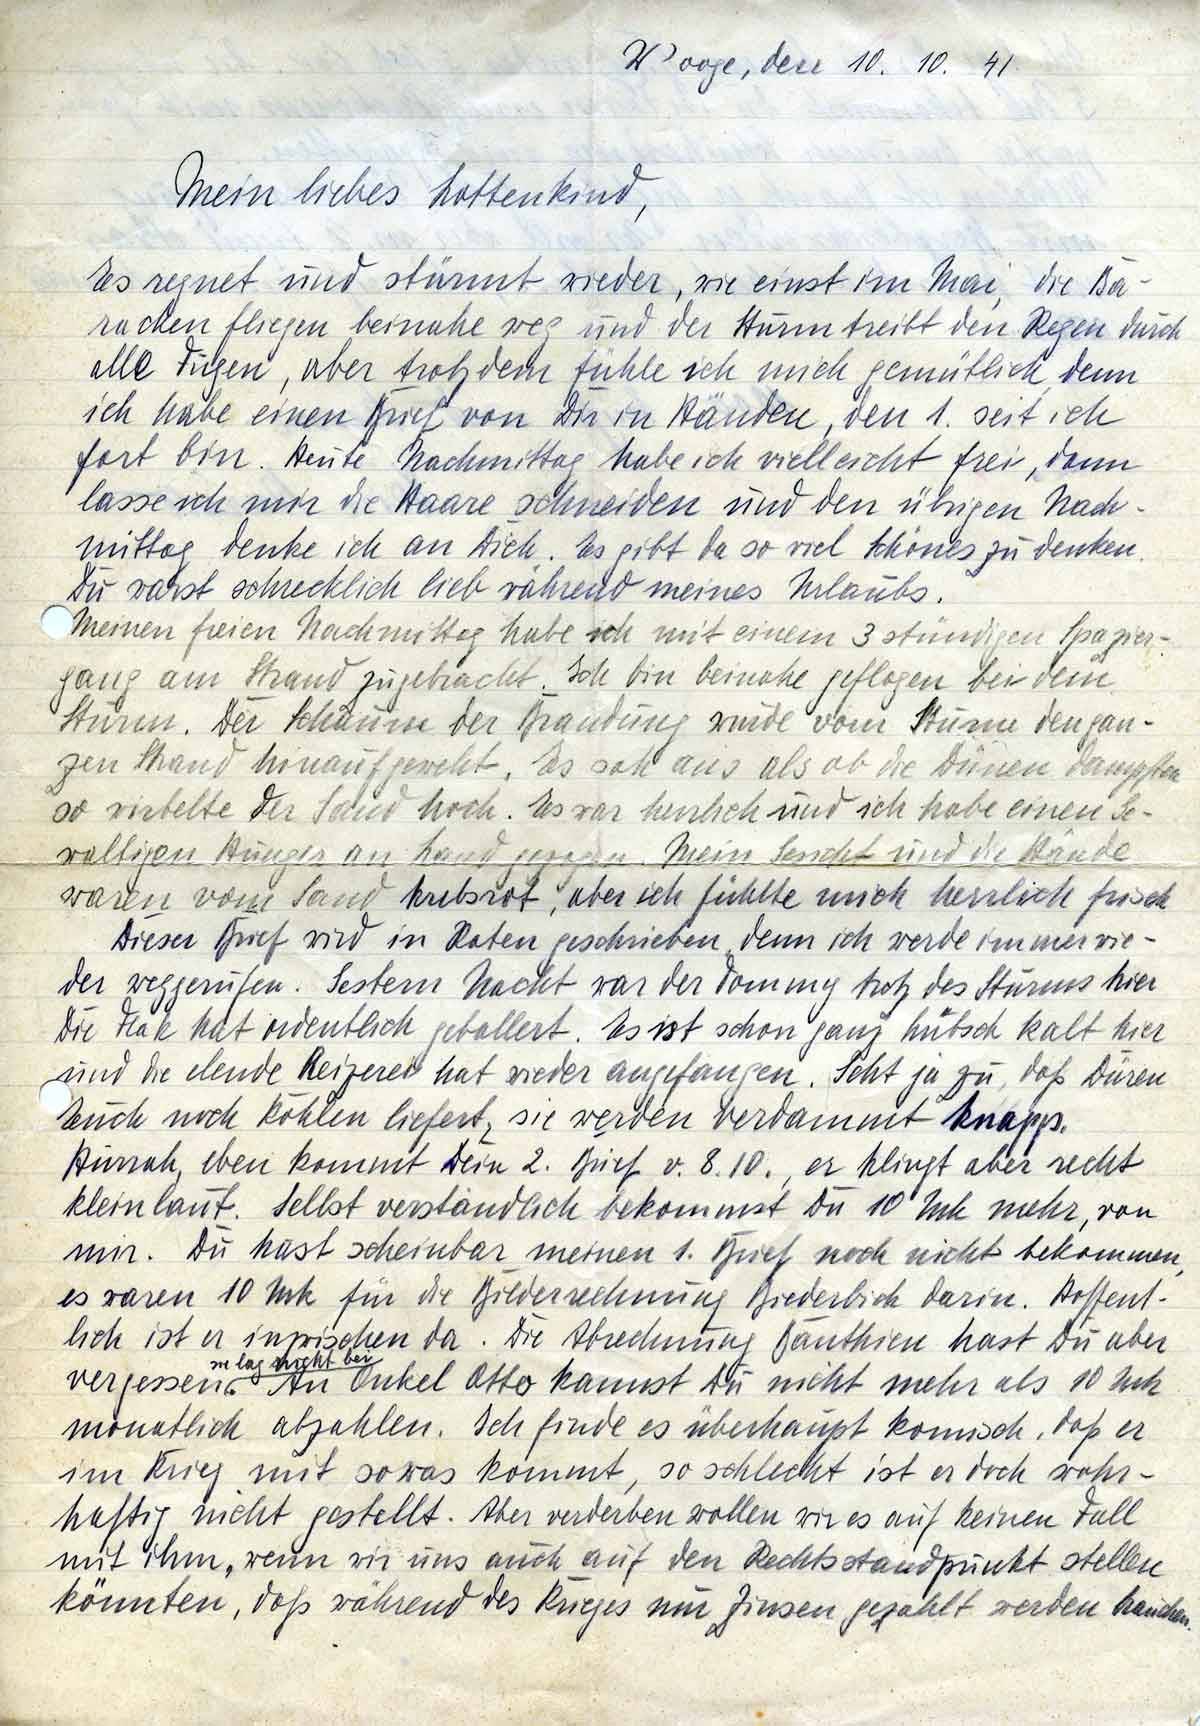 W'ooge, den 10. 10. 41
Mein liebes Lottenkind,
Es regnet und stürmt wieder, wie einst im Mai, die Ba-
racken fliegen beinahe weg und der Sturm treibt den Regen durch
alle Fugen, aber trotzdem fühle ich mich gemütlich, denn
ich habe einen Brief von Dir in Händen, den 1. seit ich
fort bin. Heute Nachmittag habe ich vielleicht frei, dann
lasse ich mir die Haare schneiden und den übrigen Nach-
mittag denke ich an Dich. Es gibt da so viel Schönes zu denken.
Du warst schrecklich lieb während meines Urlaubs.
Meinen freien Nachmittag habe ich mit einem 3 stündigen Spazier-
gang am Strand zugebracht. Ich bin beinahe geflogen bei dem
Sturm. Der Schaum der Brandung wurde vom Sturm den gan-
zen Strand hinaufgeweht. Es sah aus als ob die Dünen dampften
so wirbelte der Sand hoch. Es war herrlich und ich habe einen Ge-
waltigen Hunger an Land gezogen. Mein Gesicht und die Hände
waren vom Sand krebsrot, aber ich fühlte mich herrlich frisch
Dieser Brief wird in Raten geschrieben, denn ich werde immer wie-
der weggerufen. Gestern Nacht war der Tommy trotz des Sturms hier
Die Flak hat ordentlich geballert. Es ist schon ganz hübsch kalt hier
und die elende Heizerei hat wieder angefangen. Seht ja zu, daß Düren
Euch noch Kohlen liefert, sie werden verdammt knapp.
Hurrah, eben kommt Dein 2. Brief v. 8.10., er klingt aber recht
kleinlaut. Selbst verständlich bekommst Du 10 Mk mehr, von
mir. Du hast scheinbar meinen 1. Brief noch nicht bekommen,
es waren 10 Mk für die Bilderrechnung Biederbick darin. Hoffent-
lich ist er inzwischen da. Die Abrechnung Bänthien hast Du aber
sie lag nicht bei
vergessen. An Onkel Otto kannst Du nicht mehr als 10 Mk
monatlich abzahlen. Ich finde es überhaupt komisch, daß er
im Krieg mit sowas kommt, so schlecht ist er doch wahr-
haftig nicht gestellt. Aber verderben wollen wir es auf keinen Fall
mit ihm, wenn wir uns auch auf den Rechtsstandpunkt stellen
könnten, daß während des Krieges nur Zinsen gezahlt werden brauchen.